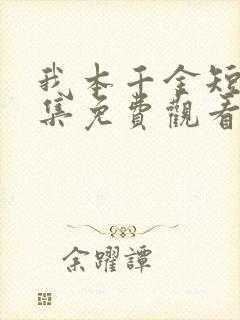 我本千金短
集免費觀看
余躍譚